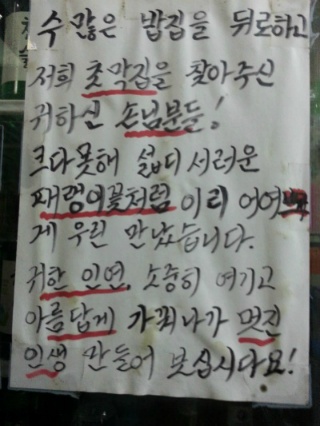 수 많은 밥집을 뒤로하고
저희 촛막집을 찾아주신
귀하신 손님분들!
크다못해 섧디서러운
패랭이꽃처럼 이리 어여
게 우린 만났습니다.
귀한 인연. 소중히 여기고
아름답게 가꿔나가 멋진
인생 만들어 보십시다요!